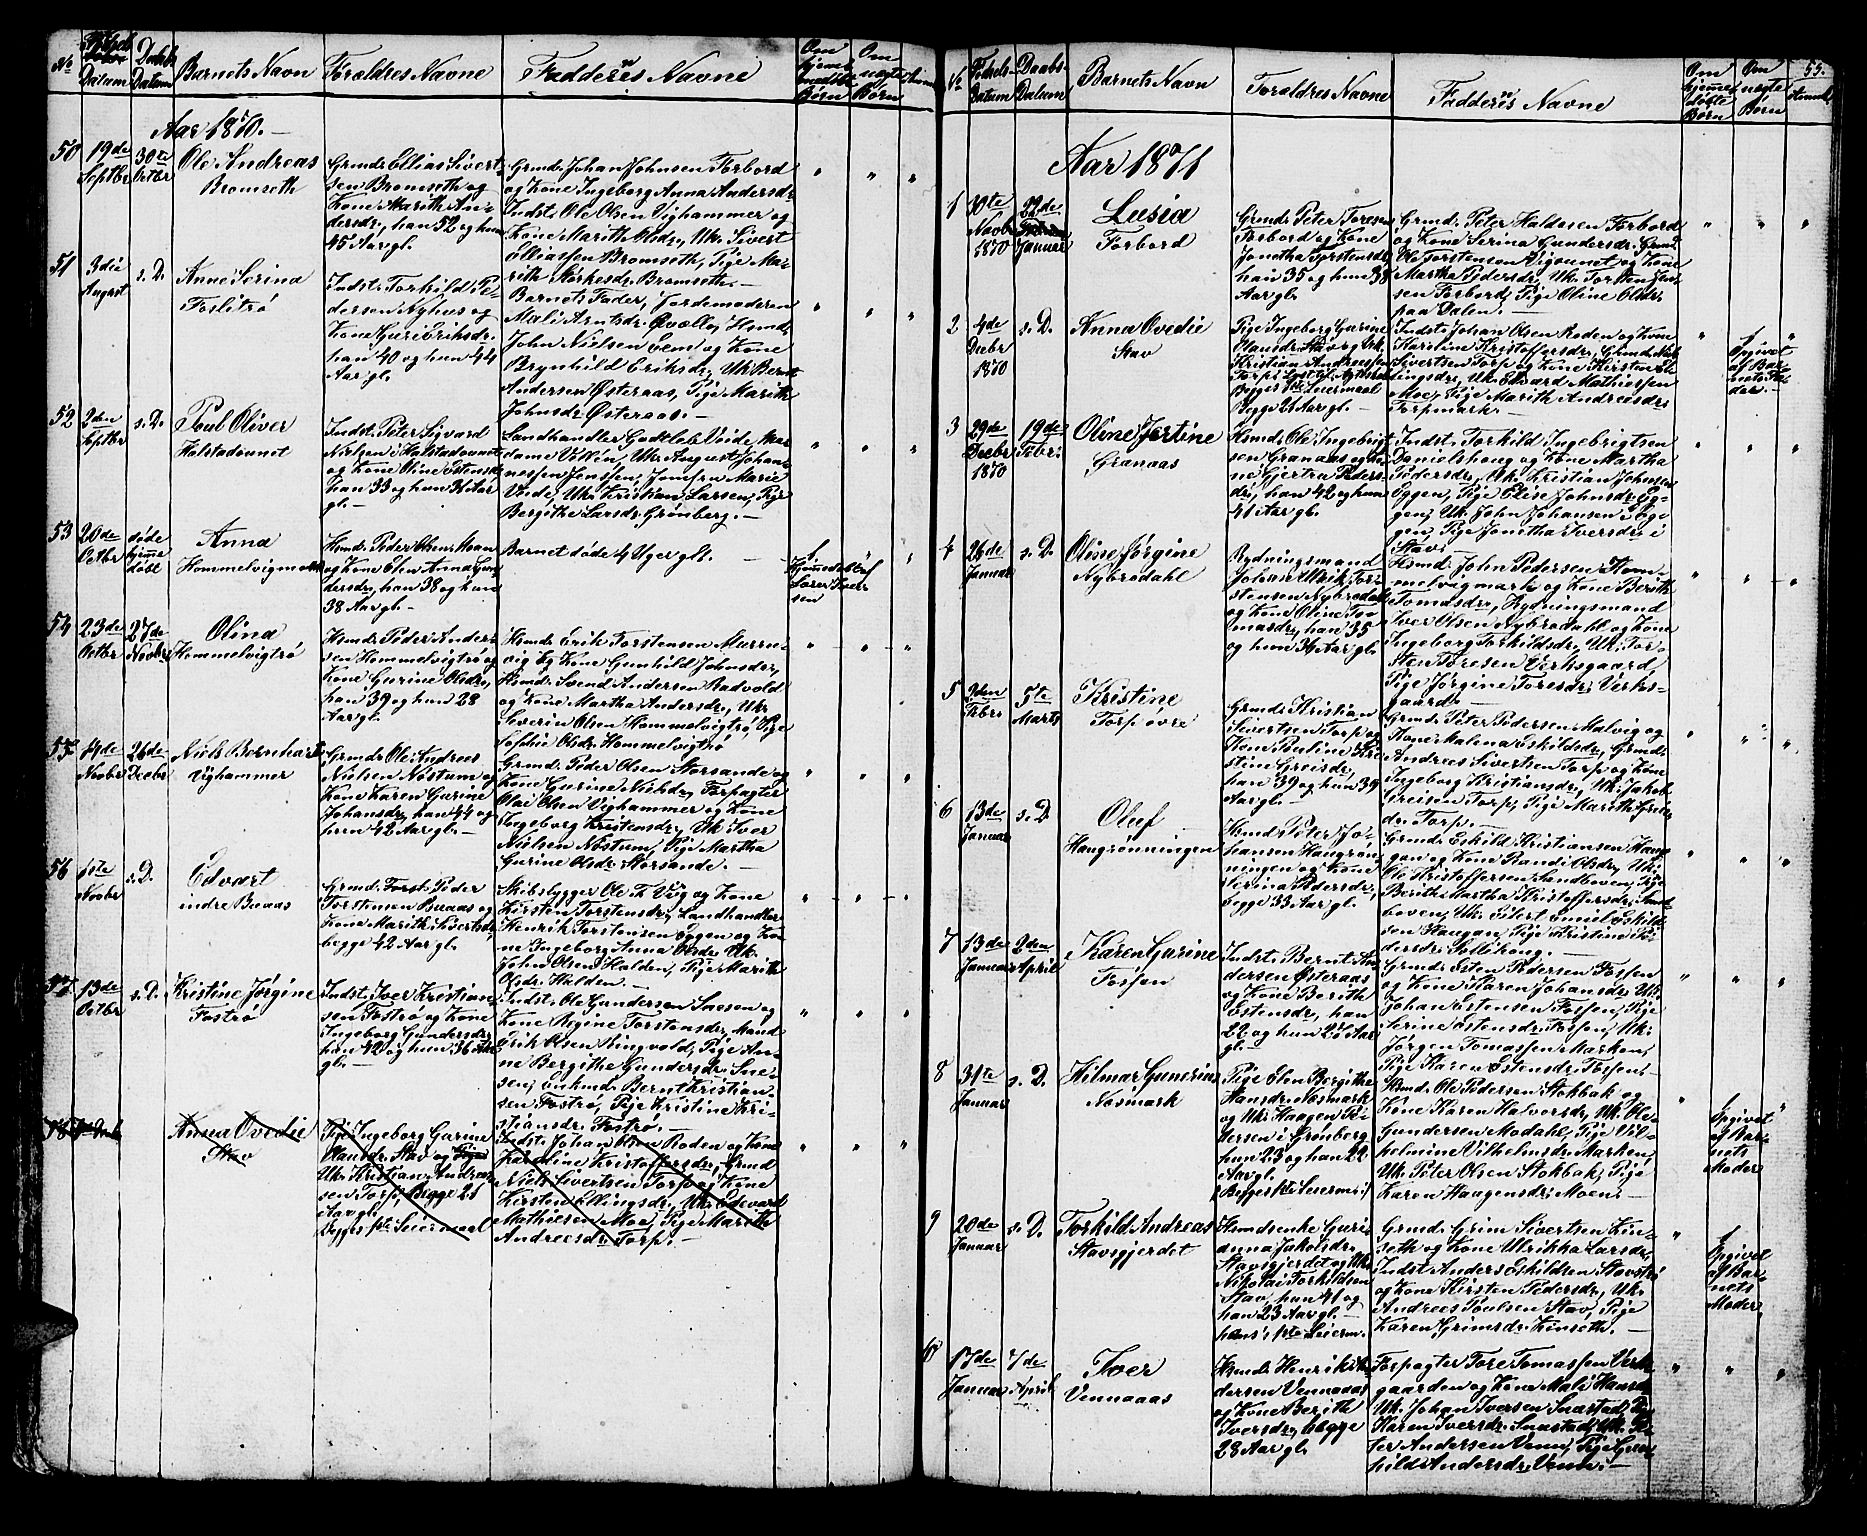 No
Datum
Daabs
Datum
Barnets Navn
Forældres Navne
Faddernes Navne
Om
hjemme
Børn
Om
uægte
Børn
Aar 1870.
50
19de
Septbr
30te
Octbr
Ole Andreas
Bromseth
Grmd: Ellias Sivert-
sen Bromseth og
Kone Marith An-
dersdr, han 52 og hun
45 Aar gl.
Grmd: Johan Johnsen Forbord
og Kone Ingeborg Anna Andersdr
Indst: Ole Olsen Vighammer og
Kone Marith Olsdr, Uk: Sivert
Elliassen Bromseth, Pige Ma-
rith Størkesdr: Bromseth.
51
3die
August
s. D.
Anne Serina
Foslitrø
Indst: Torkild Pe-
dersen Nyhus og
Kone Guri Eriksdr:
han 40 og hun 44
Aar gl.
Barnets Fader, Jordemoderen
Mali Arntsdr: Øvælle, Hsmd:
John Nielsen Vem og Kone
Brynhild Eriksdr, Uk: Bernt
Andersen Østeraas, Pige Marith
Johnsdr: Østeraas.
52
2den
Septbr
s. D.
Poul Oliver
Halstadvunet
Indst: Peter Sigvard
Nielsen i Halstadvunet
og Kone Oline Estensdr
han 33 og hun 31 Aar
gl.
Landhandler Gottleb Voide, Ma-
dame Villin, Uk: August Johan-
nessen Jenssen, Jomfru Marie
Voide, Uk: Kristian Larsen, Pige
Bergithe Larsdr: Grønberg.
53
20de
Octbr
døde
hjemme
døbt
Anna
Hommelvigmoen
Hsmd: Peder Olsen Moan
og Kone Elen Anna Gun-
dersdr, han 38 og hun
38 Aar gl.
Barnet døde 4 Uger gl.
1.
Hjemmedøbt af
Søren Iver-
sen
54
23de
Octbr
27de
Novbr
Olina
Hommelvigtrø
Hsmd: Peder Ander-
sen Hommelvigtrø og
Kone Gurine Olsdr,
han 39 og hun 28
Aar gl.
Hsmd: Erik Torstensen Muru-
vig og Kone Gunhild Johnsdr,
Hsmd: Svend Andersen Rødvold
og Kone Martha Andersdr, Uk:
Severin Olsen Hommelvigtrø, Pige
Sophie Olsdr: Hommelvigtrø
55
14de
Novbr
26de
Decbr
Niels Bernhard
Vighammer
Grmd: Ole Andreas
Nielsen Nøstum og
Kone Karen Gurine
Johansdr, han 44 og
hun 42 Aar gl.
Grmd: Peder Olsen Storsande og
Kone Gurine Nielsdr, Forpagter
Olai Olsen Vighammer og Kone
Ingeborg Kristensdr, Uk: Iver
Nielsen Nøstum, Pige Martha
Gurine Olsdr: Storsande.
56
1ste
Novbr
s. D.
Edvart
indre Buaas
Grmd: Peder
Torstensen Buaas og
Kone Marith Sivertsdr,
begge 42 Aar gl.
Skibsbygger Ole T. Vig og Kone
Kirsten Torstensdr, Landhandler
Henrik Torstensen Eggen og Ko-
ne Ingeborg Anna Olsdr, Uk:
John Olsen Halden, Pige Marith
Olsdr: Halden.
57
13de
Octbr
s. D.
Kristine Jørgine
Fostrø
Indst: Iver Kristian-
sen Fostrø og Kone
Ingeborg Gundersdr,
han 42 og hun 36 Aar
gl.
Indst: Ole Gundersen Snesen og
Kone Regine Torstensdr, Mand
Erik Olsen Ringvold, Pige An-
ne Bergithe Gundersdr: Sne-
sen, Enkmd: Bernt Kristian-
sen Fostrø, Pige Kristine Kri-
stiansdr: Fostrø.
58
Anna Ovedie
Stav
Pige Ingeborg Gurine
Hansdr: Stav og
Uk: Kristian Andreas-
sen Torp, Begge 21
Aar gl.
Begges 1ste Leiermaal
Indst: Johan Olsen Roden og Kone
Karoline Kristoffersdr, Grmd
Niels Sivertsen Torp og Kone
Kirsten Ellingsdr, Uk: Edevard
Mathiesen Moe, Pige Marith
Andreasdr: Torp.
55.
No
Fødsels-
Datum
Daabs-
Datum
Barnets Navn
Forældres Navne
Faddernes Navne
Om
hjemme
døbte
Børn
Om
uægte
Børn
Anmkl
Aar 1871
1
30te
Novbr
1870
22de
Januar
Lusia
Forbord
Grmd: Peter Toresen
Forbord og Kone
Jonetha Torstensdr,
han 35 og hun 38
Aar gl.
Grmd: Peter Haldesen Forbord
og Kone Serina Gundersdr: Grmd:
Ole Torstensen Vigvunet og Kone
Martha Pedersdr, Uk: Torsten Jen-
sen Forbord, Pige Oline Olsdr:
paa Dalen.
2
4de
Decbr
1870
s. D.
Anna Ovedie
Stav
Pige Ingeborg Gurine
Hansdr: Stav og Uk:
Kristian Andreassen
Begges 1ste Leiermaal
Begge 21 Aar gl.
Indst: Johan Olsen Roden og Kone
Karoline Kristoffersdr, Grmd: Niels
Sivertsen Torp og Kone Kirsten El-
lingsdr, Uk: Edvard Mathiessen
Moe, Pige Marith Andreasdr:
Torpmark.
1
Opgivet
af Bar-
nets Fa-
der.
3
29de
Decbr
1870
19de
Febr:
Oline Jertine
Granaas
Hsmd: Ole Ingebrigt-
sen Granaas og Ko-
ne Gjertru Peders-
dr, han 42 og hun
41 Aar gl.
Indst: Torkild Ingebrigtsen
Danielshaug og Kone Martha
Pedersdr, Uk: Kristian Johnsen
Eggen, Pige Elise Johnsdr: Eg-
gen, Uk: John Johansen Eg-
gen, Pige Jonetha Iversdr: i
Stav.
4
26de
Januar
s. D.
Oline Jørgine
Nybrodahl
Rydningsmand
Johan Ulrik Tor-
stensen Nybrodahl
og Kone Oline To-
masdr, han 35
og hun 34 Aar gl.
Hsmd: John Pedersen Hom-
melvigmark og Kone Berith
Tomasdr, Rydningsmand
Iver Olsen Nybrodahl og Kone
Ingeborg Torkildsdr, Uk: Tor-
sten Toresen Verksgaard
Pige Jørgine Toresdr: Verks-
gaard.
5
2den
Febr:
5te
Marts
Kristine
Torp øvre
Grmd: Kristian
Sivertsen Torp og
Kone Pauline Kri-
stine Greisdr,
han 39 og hun 39
Aar gl.
Grmd: Peter Pedersen Malvig og
Kone Malena Eskildsdr, Grmd:
Andreas Sivertsen Torp og Kone
Ingeborg Kristiansdr, Uk: Jakob
Greisen Torp, Pige Marith Greis-
dr: Torp.
6
13de
Januar
s. D.
Oluf
Haugrønningen
Hsmd: Peter Jo-
hansen Haugrøn-
ningen og Kone
Serina Pedersdr,
begge 33 Aar gl.
Grmd: Eskild Kristiansen Hau-
gan og Kone Randi Olsdr, Uk:
Ole Kristoffersen Sandboven, Pige
Berith Martha Kristoffersdr: Sand-
boven, Uk: Eilert Emil Eskild-
sen Haugan, Pige Kristine Pe-
dersdr: Sellihoug.
7
13de
Januar
2den
April
Karen Gurine
Fossen
Indst: Bernt An-
dersen Østeraas
og Kone Berith
Estensdr, han
22 og hun 27 Aar
gl.
Grmd: Esten Pedersen Fossen
og Kone Karen Johansdr, Uk:
Johan Estensen Fossen, Pige
Serine Estensdr: Fossen, Uk:
Jørgen Tomassen Marken,
Pige Karen Estensdr: Fossen.
8
31te
Januar
s. D.
Hilmar Gunerius
Nøsmark
Pige Elen Bergithe
Hansdr: Nøsmark
og Uk: Haagen Pe-
dersen i Grønberg
hun 23 og han 22
Aar gl.
(Begges 1ste Leierm:)
Hsmd: Ole Pedersen Stokbak og
Kone Karen Halvorsdr, Uk: Ole
Gundersen Modahl, Pige Vil-
helmine Vilhelmsdr: Marken,
Uk: Peter Olsen Stokbak, Pige
Karen Haagensdr: Moen.
1
Opgivet
af Bar-
nets
Moder
9
20de
Januar
s. D.
Torkild Andreas
Stavsgjerdet
Hsmdsenke Guri-
anna Jakobsdr:
Stavsgjerdet og Uk:
Nikolai Torkildsen
Stav, hun 41 og
han 23 Aar gl.
hans 1ste Leierm.
Grmd: Grim Sivertsen Kin-
seth og Kone Ulrikka Larsdr,
Indst: Anders Eskildsen Stavstrø
og Kone Kirsten Pedersdr, Uk:
Andreas Poulsen Stav, Pige
Karen Grimsdr: Kinseth.
1
Opgivet
af Bar-
nets
Moder
10
17de
Januar
7de
April
Iver
Vennaaas
Hsmd: Henrik An-
dersen Vennaaas
og Kone Berith
Iversdr, begge
28 Aar gl.
Forpagter Tore Tomassen Verks-
gaarden og Kone Mali Hansdr
Uk: Johan Iversen Snustad, Pige
Karen Iversdr: Snustad, Uk: Pe-
ter Andersen Venn, Pige Gun-
hild Andersdr: Venn.